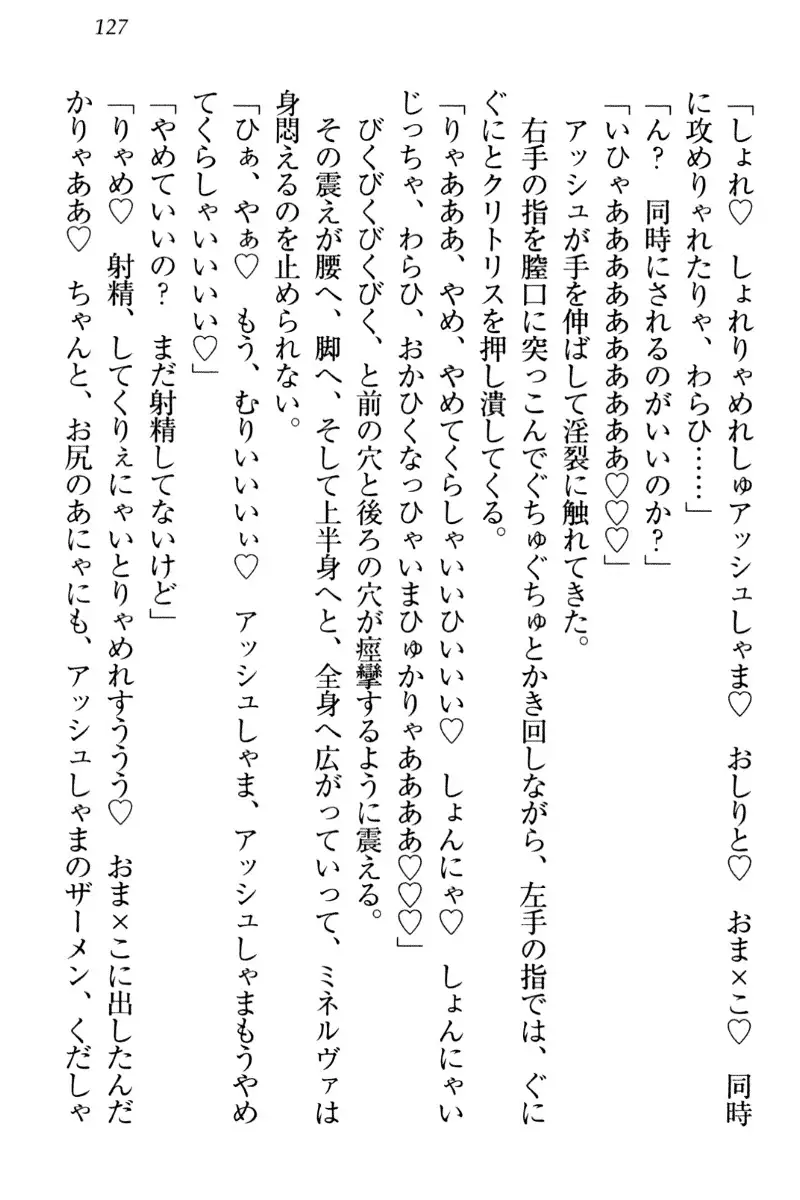 127
「しょれ♡　しょれりゃめれしゅアッシュしゃま♡　おしりと♡　おま×こ♡　同時
に攻めりゃれたりゃ、わらひ……」
「ん？　同時にされるのがいいのか？」
「いひゃああああああああああ♡♡♡」
アッシュが手を伸ばして淫裂に触れてきた。
右手の指を膣口に突っこんでぐちゅぐちゅとかき回しながら、左手の指では、ぐに
ぐにとクリトリスを押し潰してくる。
「りゃあああ、やめ、やめてくらしゃいいひいいい♡　しょんにゃ♡　しょんにゃい
じっちゃ、わらひ、おかひくなっひゃいまひゅかりゃああああ♡♡♡」
びくびくびくびく、と前の穴と後ろの穴が痙攣するように震える。
その震えが腰へ、脚へ、そして上半身へと、全身へ広がっていって、ミネルヴァは
身悶えるのを止められない。
「ひぁ、やぁ♡　もう、むりいいいぃ♡　アッシュしゃま、アッシュしゃまもうやめ
てくらしゃいいいい♡」
「やめていいの？　まだ射精してないけど」
「りゃめ♡　射精、してくりぇにゃいとりゃめれすううう♡　おま×こに出したんだ
かりゃああ♡　ちゃんと、お尻のあにゃにも、アッシュしゃまのザーメン、くだしゃ